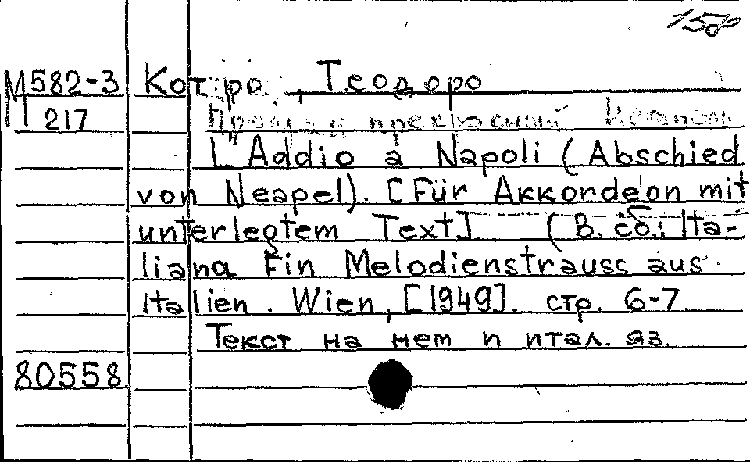 150
М582-3 Коттро, Теодоро
П 217 Прощай прекрасный Неаполь
L'Addio à Napoli (Abschied
von Neapel). [Für Akkordeon mit
unterlegtem Text] (В сб.: Ita-
liana Ein Melodienstrauss aus
Italien. Wien, [1949]. стр. 6-7
Текст на нем и итал. яз.
80558